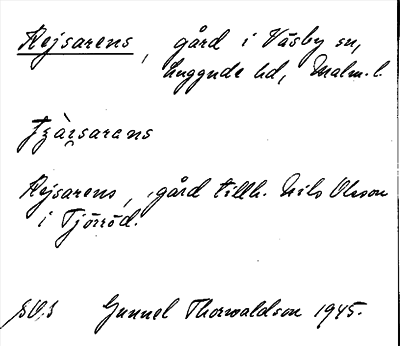 Rejsarens, gård i Väsby sn,
Luggude hd, Malm. l.
Rejsarens, gård tillh. Nils Olsson
i Tjörröd.
Gunnel Thorwaldson 1945.